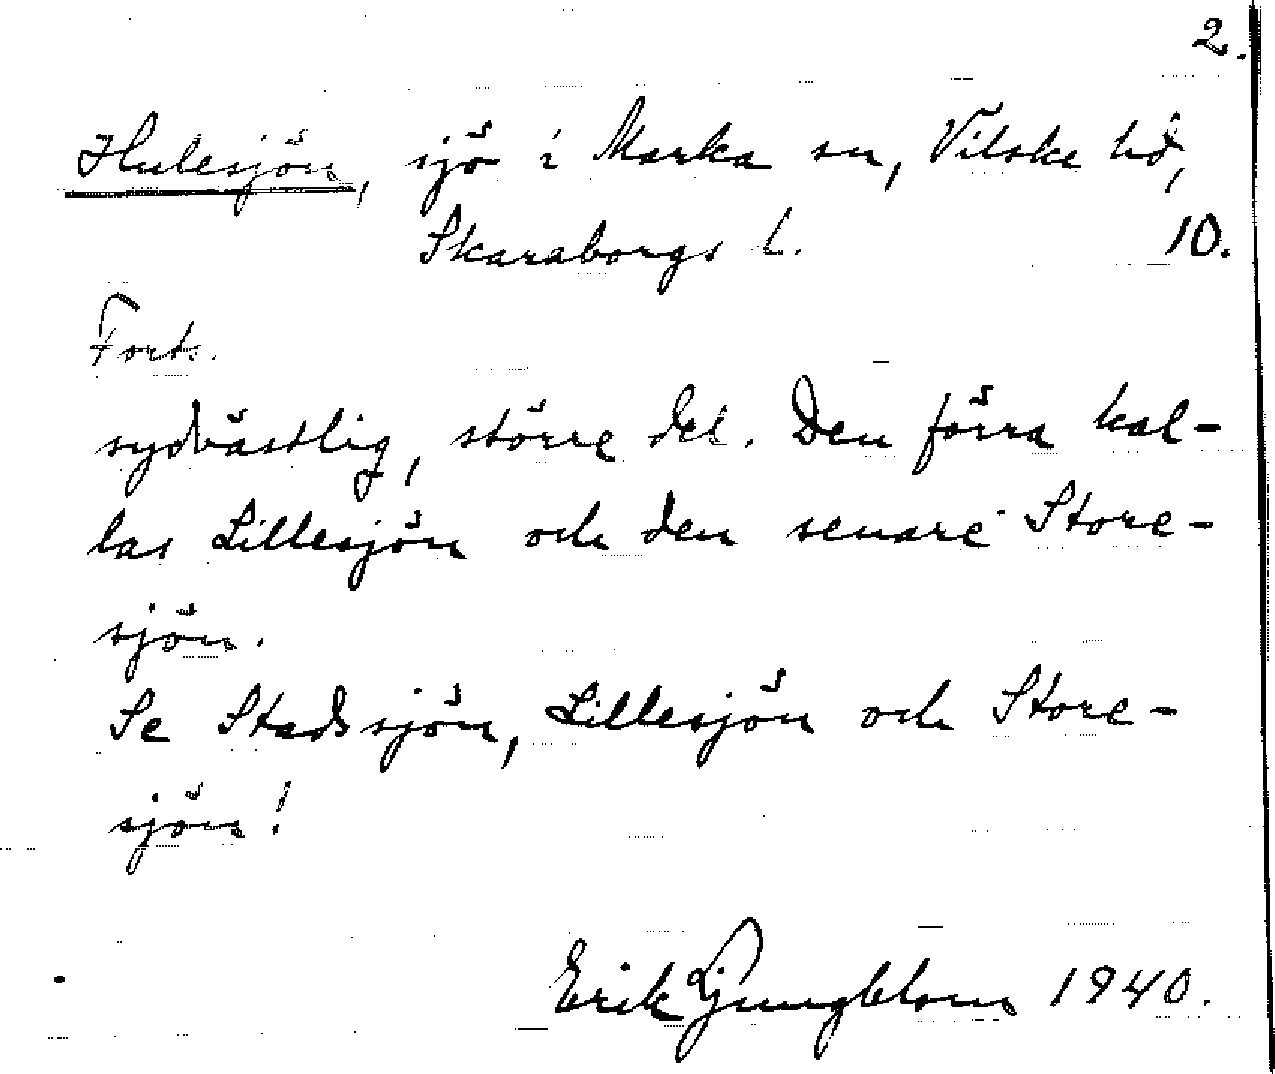 2.
Hulesjön, sjö i Marka sn, Vilske hd,
Skaraborgs l. 10.
Forts.
sydvästlig, större del. Den förra kal-
las Lillesjön och den senare Store-
sjön.
Se Stadsjön, Lillesjön och Store-
sjön!
Erik Ljungblom 1940.